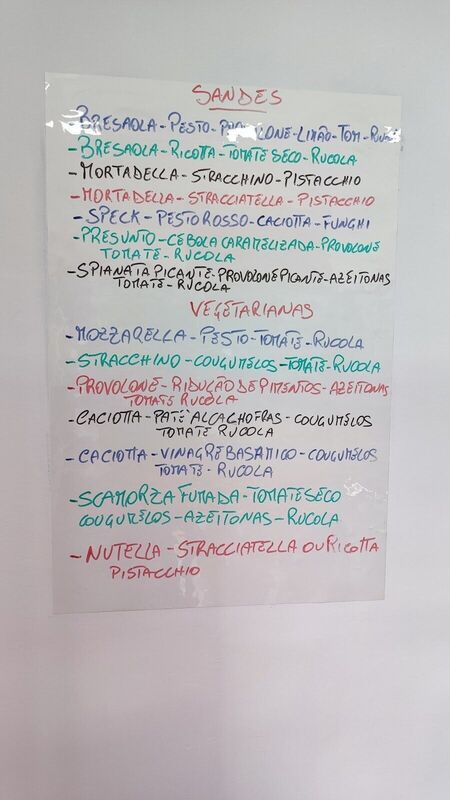 SANDES
-BRESAOLA-PESTO-PROVOLONE-LIMÃO-TOM-RUC
-BRESAOLA-RICOTTA-TOMATE SECO-RUCOLA
-MORTADELLA-STRACCHINO-PISTACCHIO
-MORTADELLA-STRACCIATELLA-PISTACCHIO
-SPECK-PESTO ROSSO-CACIOTTA-FUNGHI
-PRESUNTO-CEBOLA CARAMELIZADA-PROVOLONE
TOMATE-RUCOLA
-SPIANATA PICANTE-PROVOLONE PICANTE-AZEITONAS
TOMATE-RUCOLA
VEGETARIANAS
-MOZZARELLA-PESTO-TOMATE-RUCOLA
-STRACCHINO-COUGUMELOS-TOMATE-RUCOLA
-PROVOLONE-RIDUÇÃO DE PIMENTOS-AZEITONAS
TOMATE RUCOLA
-CACIOTTA-PATE' ALCALHOFRAS-COUGUMELOS
TOMATE RUCOLA
-CACIOTTA-VINAGRE BASAMICO-COUGUMELOS
TOMATE-RUCOLA
-SCAMORZA FUMADA-TOMATE SECO
COUGUMELOS-AZEITONAS-RUCOLA
-NUTELLA-STRACCIATELLA OU RICOTTA
PISTACCHIO